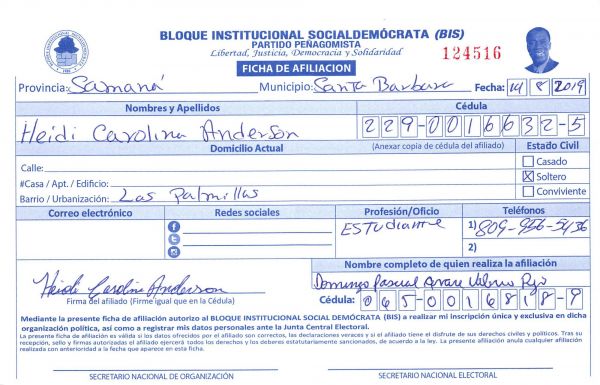 BLOQUE INSTITUCIONAL SOCIALDEMÓCRATA (BIS)
PARTIDO PEÑAGOMISTA
Libertad, Justicia, Democracia y Solidaridad
124516
FICHA DE AFILIACION
Provincia: Samaná Municipio: Santa Barbara Fecha: 14 / 8 / 2019
Nombres y Apellidos Cédula
Heidi Carolina Anderson 229-0016632-5
Domicilio Actual (Anexar copia de cédula del afiliado) Estado Civil
Calle: Casado
#Casa / Apt. / Edificio: X Soltero
Barrio / Urbanización: Las Palmillas Conviviente
Correo electrónico Redes sociales Profesión/Oficio Teléfonos
Estudiante 1) 809-956-5436
2)
Nombre completo de quien realiza la afiliación
Heidi Carolina Anderson Domingo Pascual
Firma del afiliado (Firme igual que en la Cédula) Cédula: 065-0016818-9
Mediante la presente ficha de afiliación autorizo al BLOQUE INSTITUCIONAL SOCIAL DEMÓCRATA (BIS) a realizar mi inscripción única y exclusiva en dicha
organización política, así como a registrar mis datos personales ante la Junta Central Electoral.
La presente ficha de afiliación es válida si los datos ofrecidos por el afiliado son correctos, las declaraciones veraces y si el titular tiene el disfrute de sus derechos civiles y políticos. Tras su
recepción, sello y firmas autorizadas el afiliado ejercerá todos los derechos y los deberes estatutariamente sancionados, de acuerdo a la ley. La presente afiliación anula cualquier afiliación
realizada con anterioridad a la fecha que aparece en esta ficha.
SECRETARIO NACIONAL DE ORGANIZACIÓN SECRETARIO NACIONAL ELECTORAL